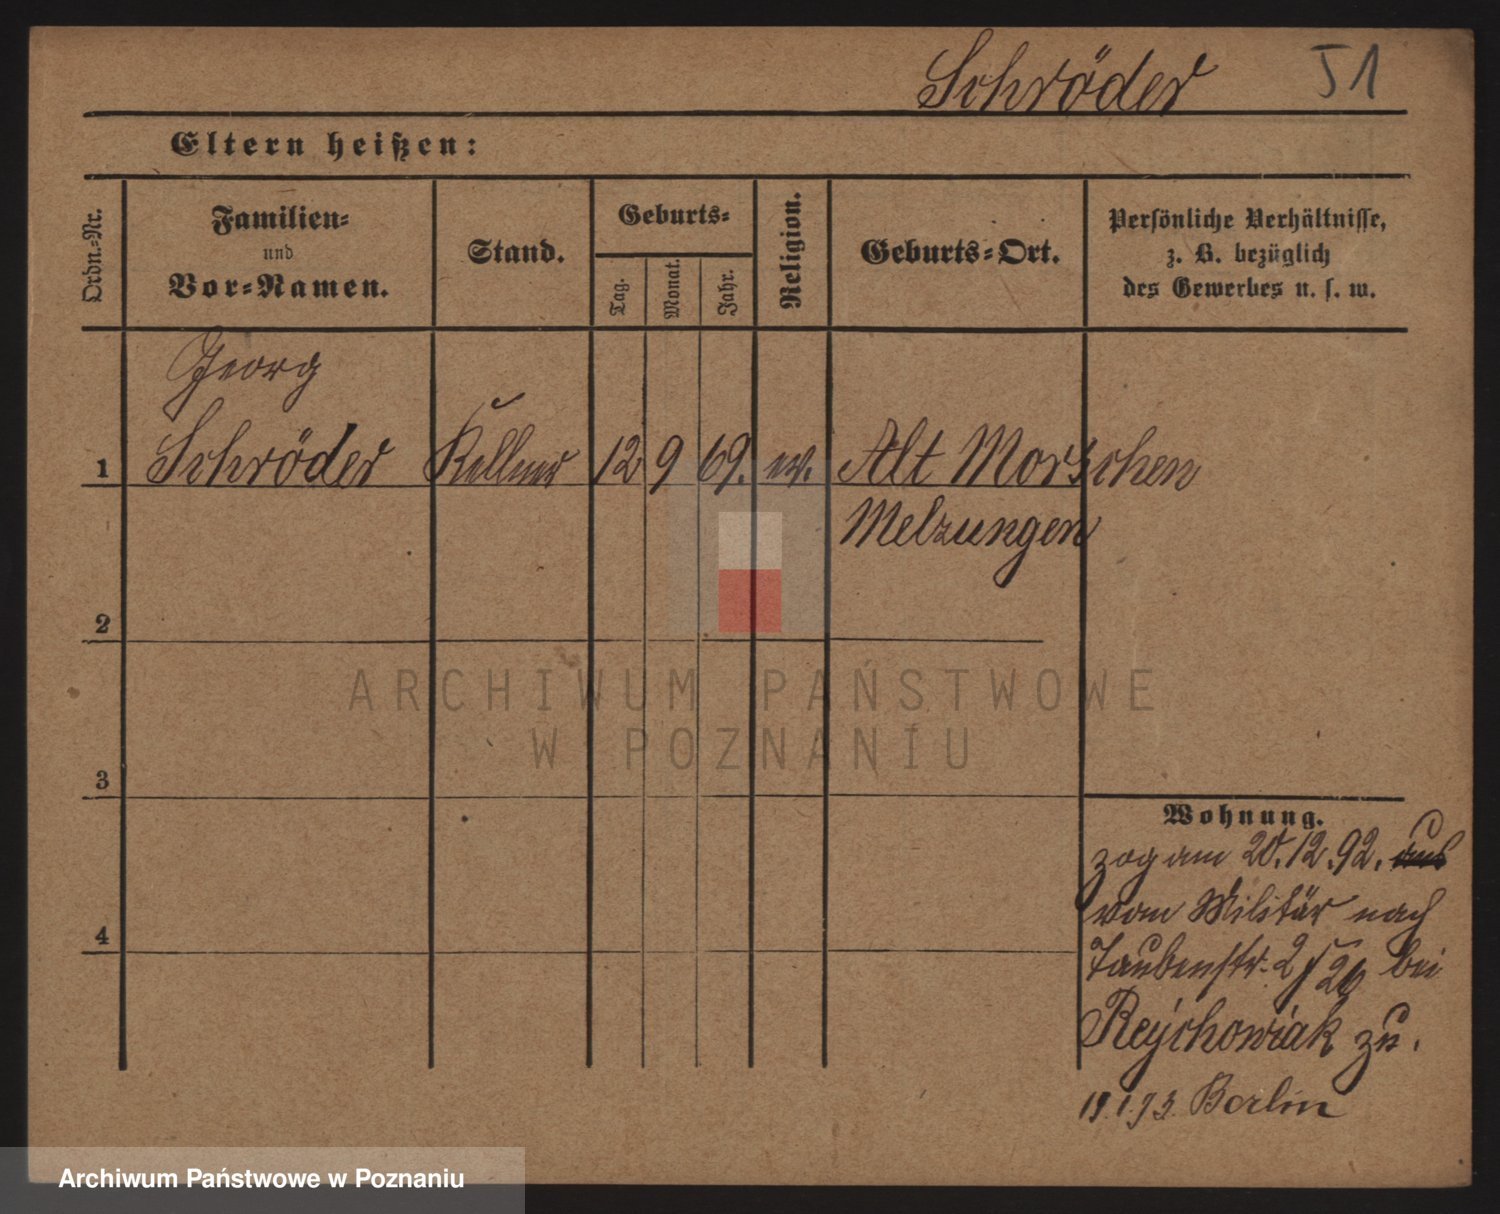 Schröder 51
Eltern heißen:
Ordn.=Nr.
Familien=
und
Vor=Namen.
Stand.
Geburts=
Tag.
Monat.
Jahr.
Religion.
Geburts=Ort.
Persönliche Verhältnisse,
z. B. bezüglich
des Gewerbes u. s. w.
Georg
1 Schröder Kellner 12 9 69. ev. Alt Morschen
Melzungen
2
ARCHIWUM PAŃSTWOWE
W POZNANIU
3
Wohnung.
zog am 20.12.92. aus
vom Militär nach
Taubenstr. 2 bei
Reychowiak zu.
4
19.1.93. Berlin
Archiwum Państwowe w Poznaniu